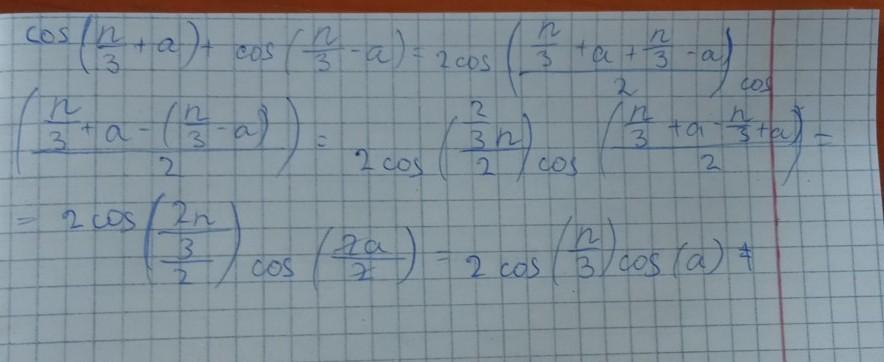 cos(n/3 + a) + cos(n/3 - a) = 2cos((n/3 + a + n/3 - a)/2) cos
((n/3 + a - (n/3 - a))/2) = 2cos((2/3 n)/2) cos((n/3 + a - n/3 + a)/2) =
= 2cos((2n/3)/2) cos(2a/2) = 2cos(n/3)cos(a)